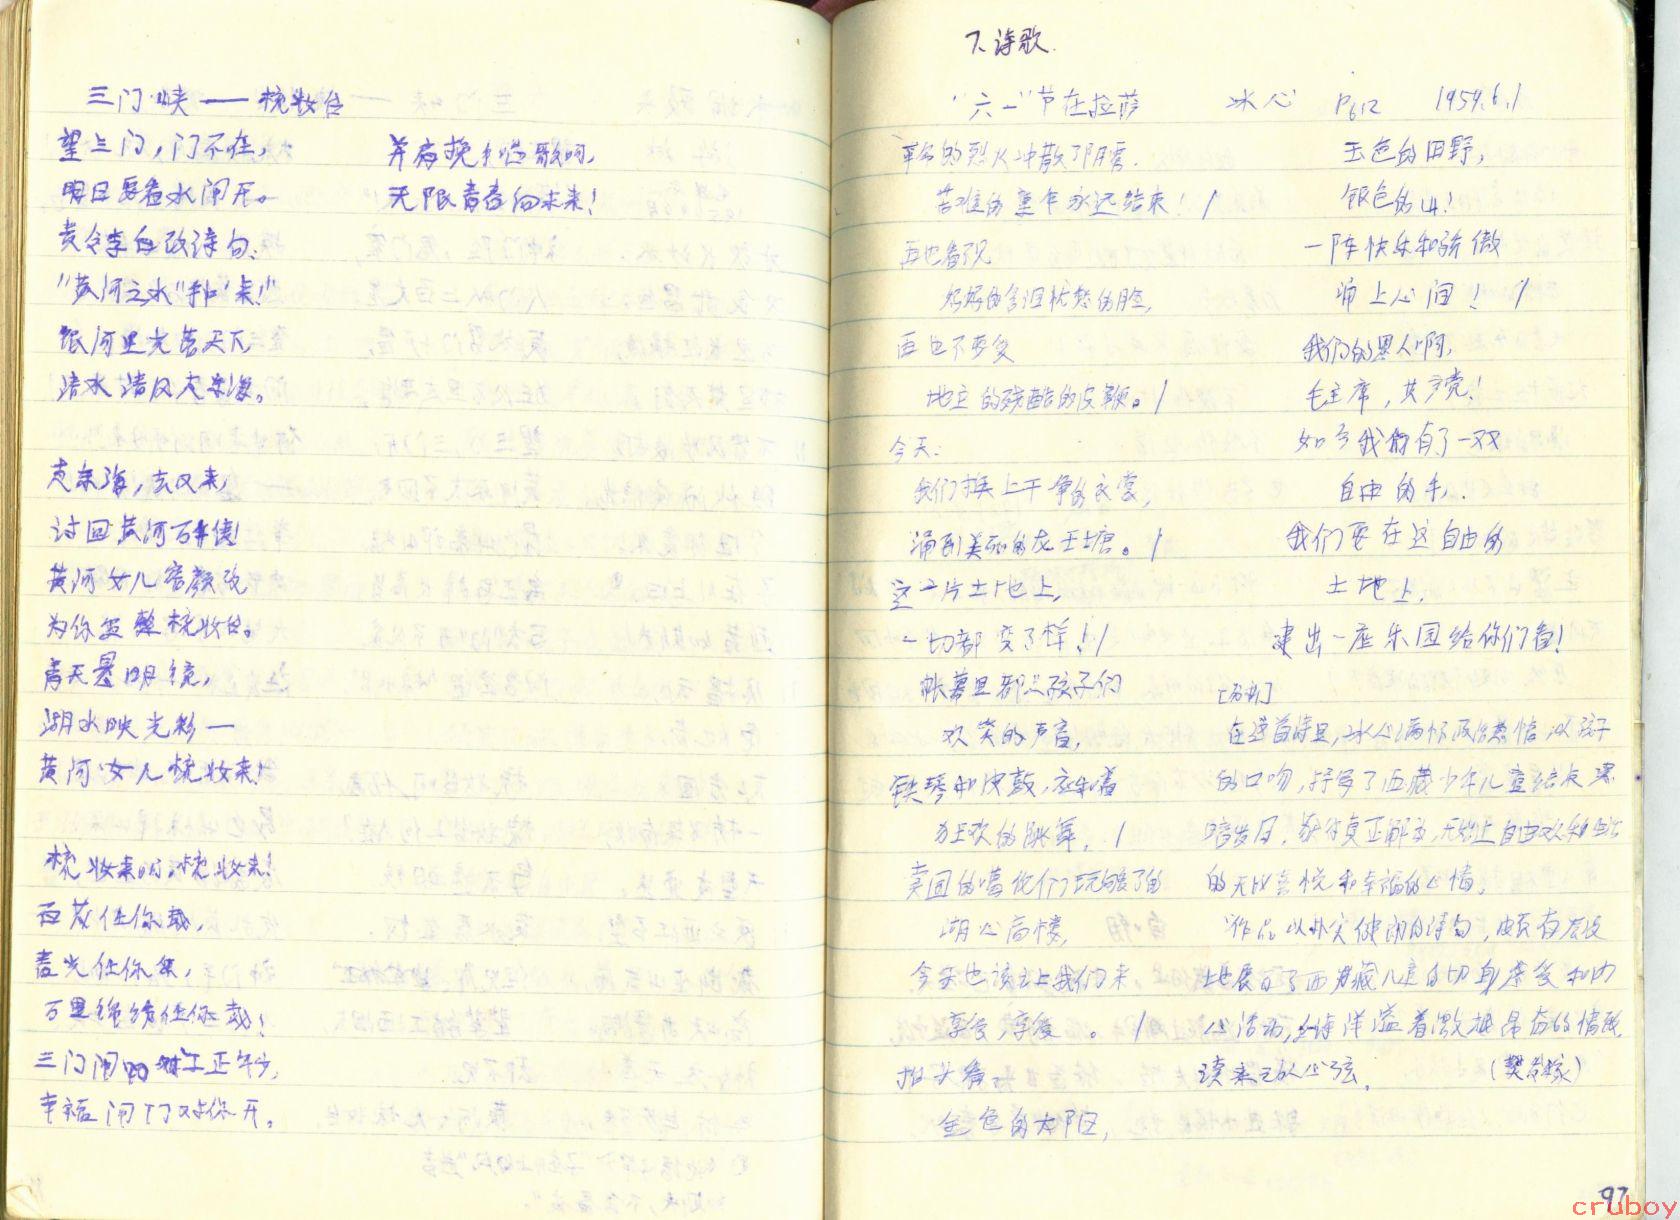 三门峡——梳妆台
望三门，门不在，
明日要看水闸开。
责令李白改诗句：
“黄河之水‘手中’来！”
银河星光落天下，
清水清风走东海。
走东海，去又来，
讨回黄河万年债！
黄河女儿容颜改
为你重整梳妆台。
青天悬明镜，
湖水映光彩——
黄河女儿梳妆来！
梳妆来啊，梳妆来！
百花任你戴，
春光任你采，
万里锦绣任你裁！
三门闸工正年少，
幸福闸门为你开。
并肩挽手唱歌呵，
无限青春向未来！
7、诗歌
“六一”节在拉萨 冰心 P612 1959.6.1
革命的烈火冲散了阴霾.
苦难的童年永远结束！/
再也看不见
妈妈的含泪忧愁的脸，
再也不要受
地主的残酷的皮鞭。/
今天：
我们换上干净的衣裳，
涌到美丽的龙王塘。/
这一片土地上，
一切都变了样！/
帐幕里都是孩子们
欢笑的声音，
铁琴和皮鼓，应和着
狂欢的跳舞，/
卖国的噶伦们玩够了的
湖心高楼，
今天也该让我们来，
享受，享受。/
抬头看：
金色的太阳，
玉色的田野，
银色的山！
一阵快乐和骄傲
涌上心间！/
我们的恩人啊，
毛主席，共产党！
如今我们有了一双
自由的手，
我们要在这自由的
土地上，
建出一座乐园给你们看！
[赏析]
在这首诗里，冰心满怀政治热情，以孩子
的口吻，抒写了西藏少年儿童结束黑
暗岁月，获得真正解放，开始上自由欢乐生活
的无比喜悦和幸福的心情。
作品以朴实健朗的诗句，颇有层次
地展示了西藏儿童的切身感受和内
心活动，全诗洋溢着激越昂奋的情感，
读来动人心弦。 （樊发稼）
97
cruboy